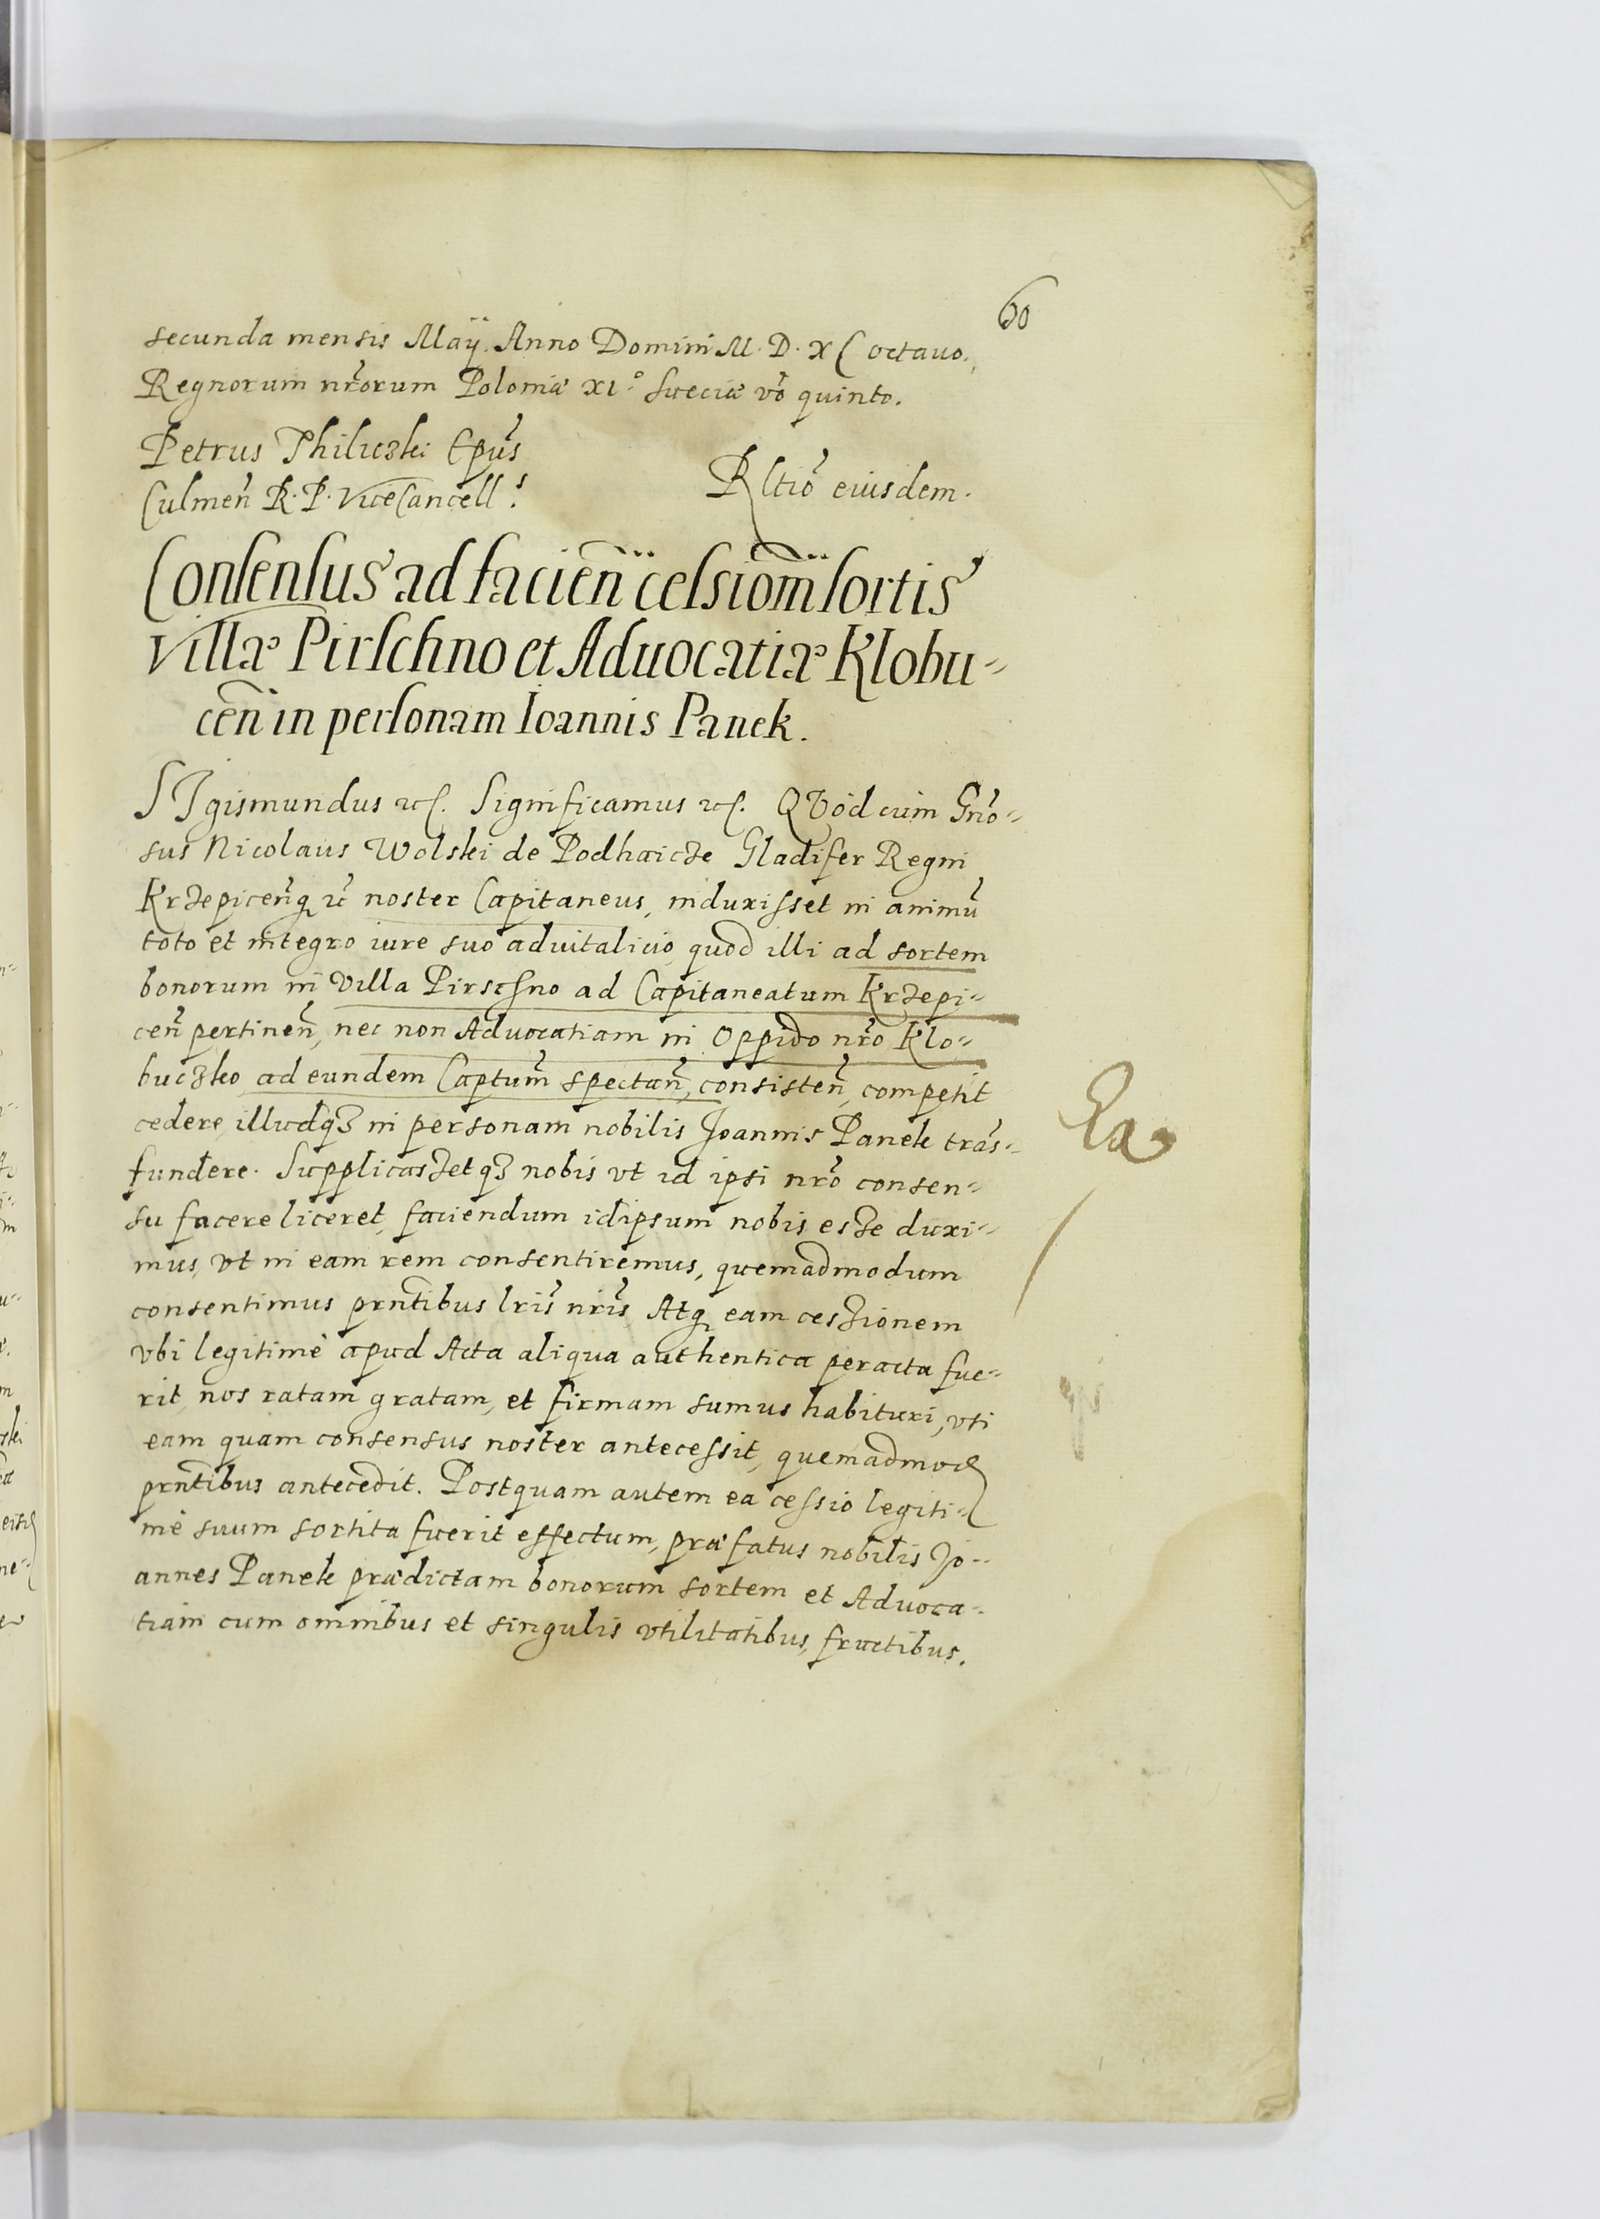 60
secunda mensis Maÿ. Anno Domini M. D. XC octauo.,
Regnorum nrõrum Poloniæ XI.° Sueciæ võ quinto.
Petrus Thiliczki Epus̃
Culmeñ R. P. ViceCancell.s
Rltio͂ eiusdem.
Consensus ad facieñ cessiom̃ sortis
Villæ Pirschno et Aduocatiæ Klobu-
ceñ in personam Ioannis Panek.
SIgismundus etc. Significamus etc. QVod cum Gno͂-
sus Nicolaus Wolski de Podhaicze Gladifer Regni
Krzepiceñq etc noster Capitaneus, induxisset in animu͂
toto et integro iure suo aduitalicio, quod illi ad sortem
bonorum in Villa Pirschno ad Capitaneatum Krzepi-
ceñ pertineñ, nec non Aduocatiam in Oppido nrõ Klo-
buczko ad eundem Captum̃ spectañ, consisteñ, competit
cedere, illudq3 in personam nobilis Joannis Panek tras̃-
fundere. Supplicassetq3 nobis vt id ipsi nrõ consen-
su facere liceret, faciendum idipsum nobis esse duxi-
mus, vt in eam rem consentiremus, quemadmodum
consentimus prñtibus lris̃ nris̃, Atq eam cessionem
vbi legitimè apud Acta aliqua authentica peracta fue-
rit, nos ratam gratam, et firmam sumus habituri, vti
eam quam consensus noster antecessit, quemadmod
prñtibus antecedit. Postquam autem ea cessio legiti-
mè suum sortita fuerit effectum, præfatus nobilis Jo-
annes Panek prædictam bonorum sortem et Aduoca-
tiam cum omnibus et singulis vtilitatibus, fructibus.